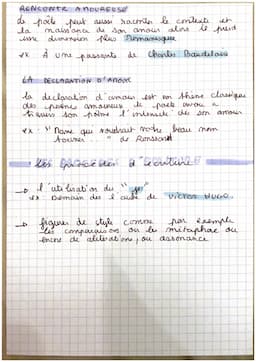 RENCONTRE AMOUREUSE
Le poète peut aussi raconter le contexte et
la naissance de son amour alors le prend
une dimension plus Romanesque
ex À une passante de Charles Baudelaire
LA DECLARATION D'AMOUR
la déclaration d'amour est un thème classique
des poèmes amoureux le poète avoue à
travers son poème l'intensité de son amour
ex : " Dame qui voudrait votre beau nom
tourner ... " de Ronsard
les procédés d'écriture
→ l'utilisation du " je "
ex Demain dès l'aube de VICTOR HUGO.
→ figures de style comme par exemple
les comparaisons ou la métaphore ou
encore de alitérations, ou assonance